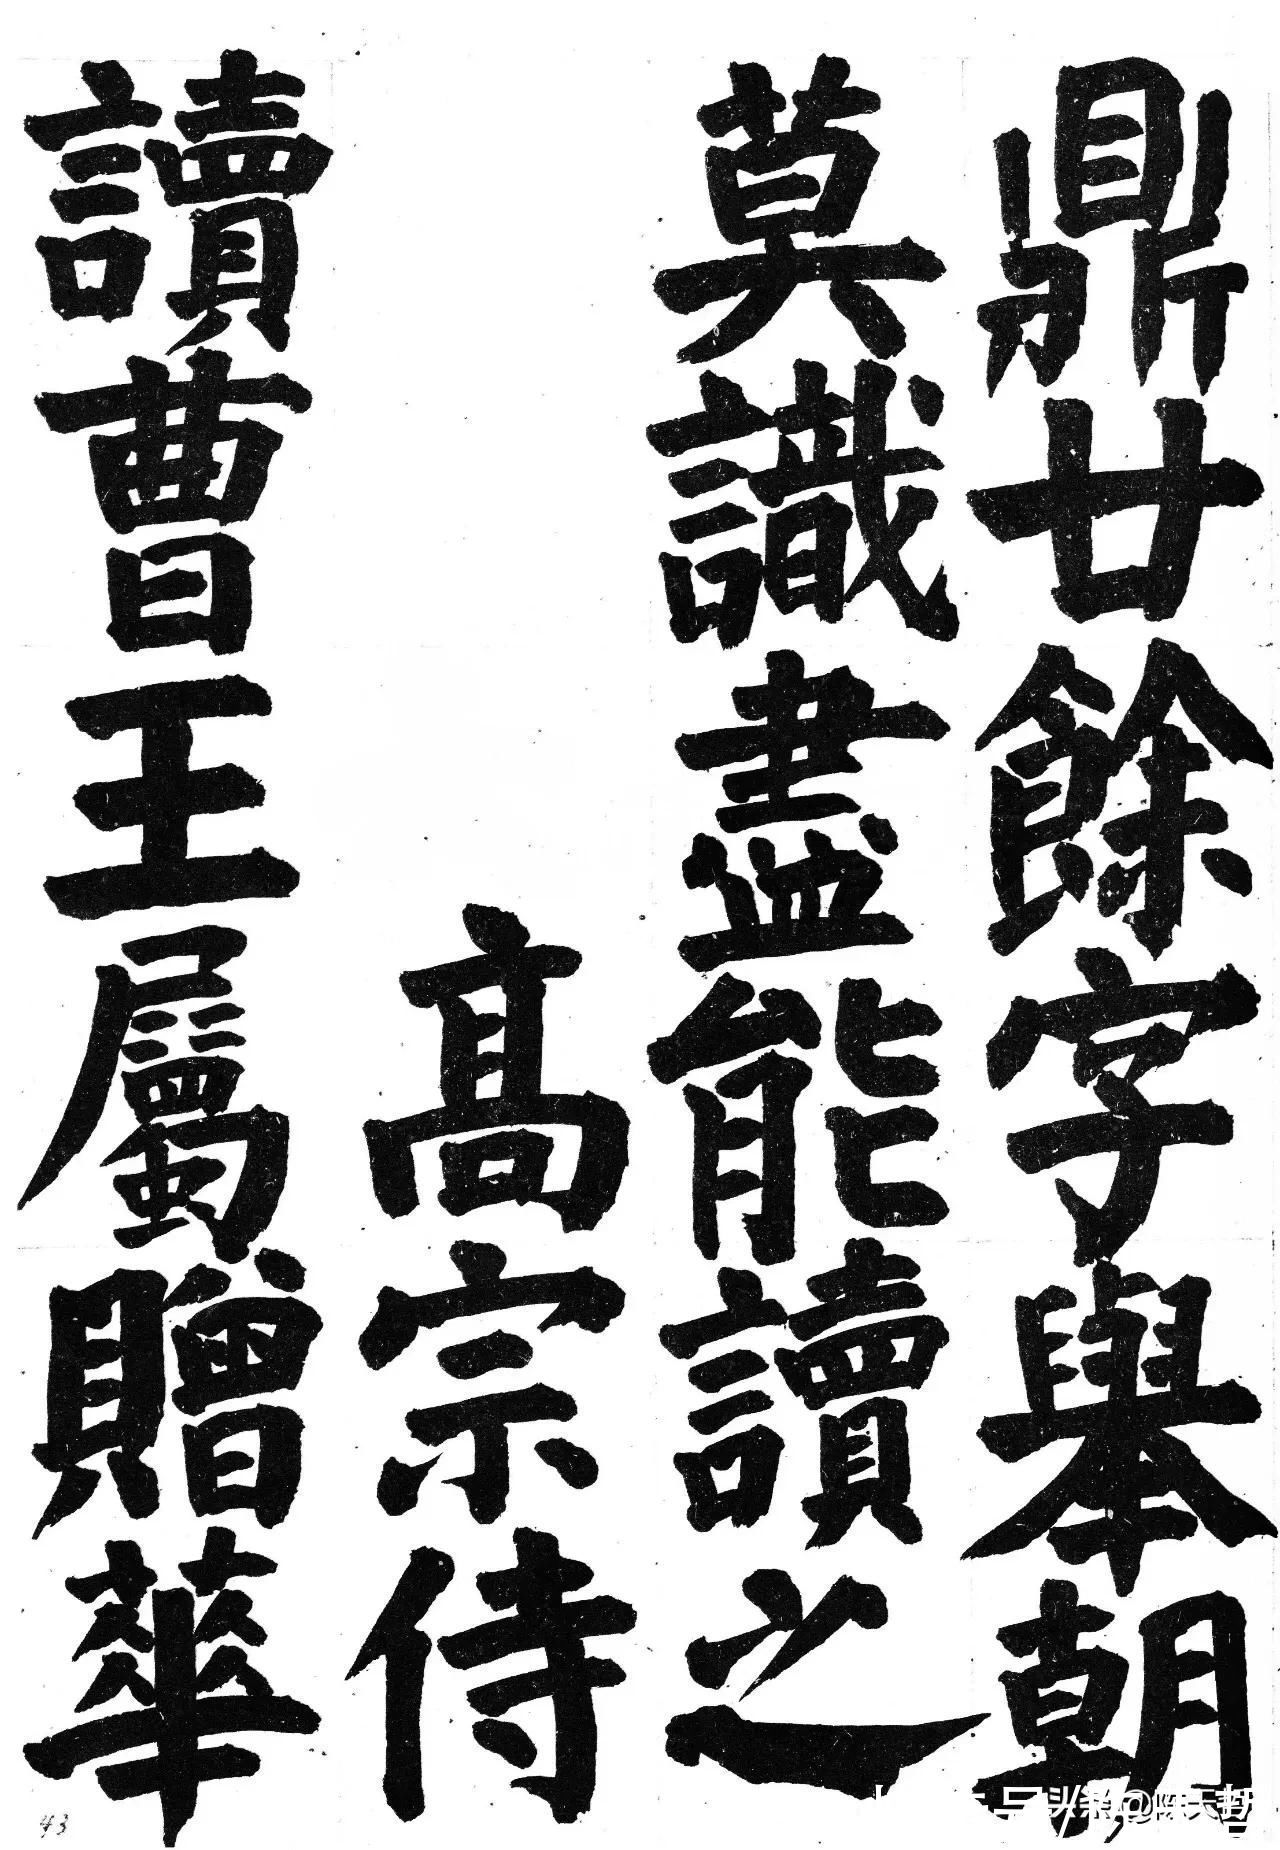 鼎廿餘字舉朝
莫識盡能讀之
高宗侍
讀曹王屬贈華
43
头条@陈天哲